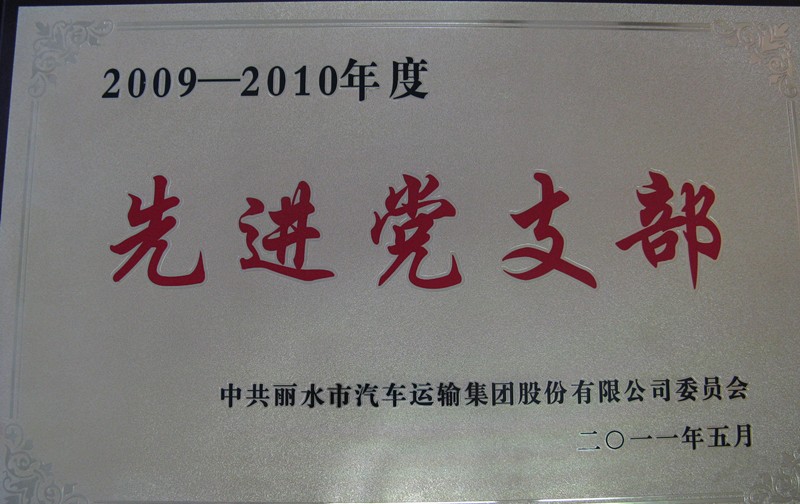 2009—2010年度
先进党支部
中共丽水市汽车运输集团股份有限公司委员会
二〇一一年五月